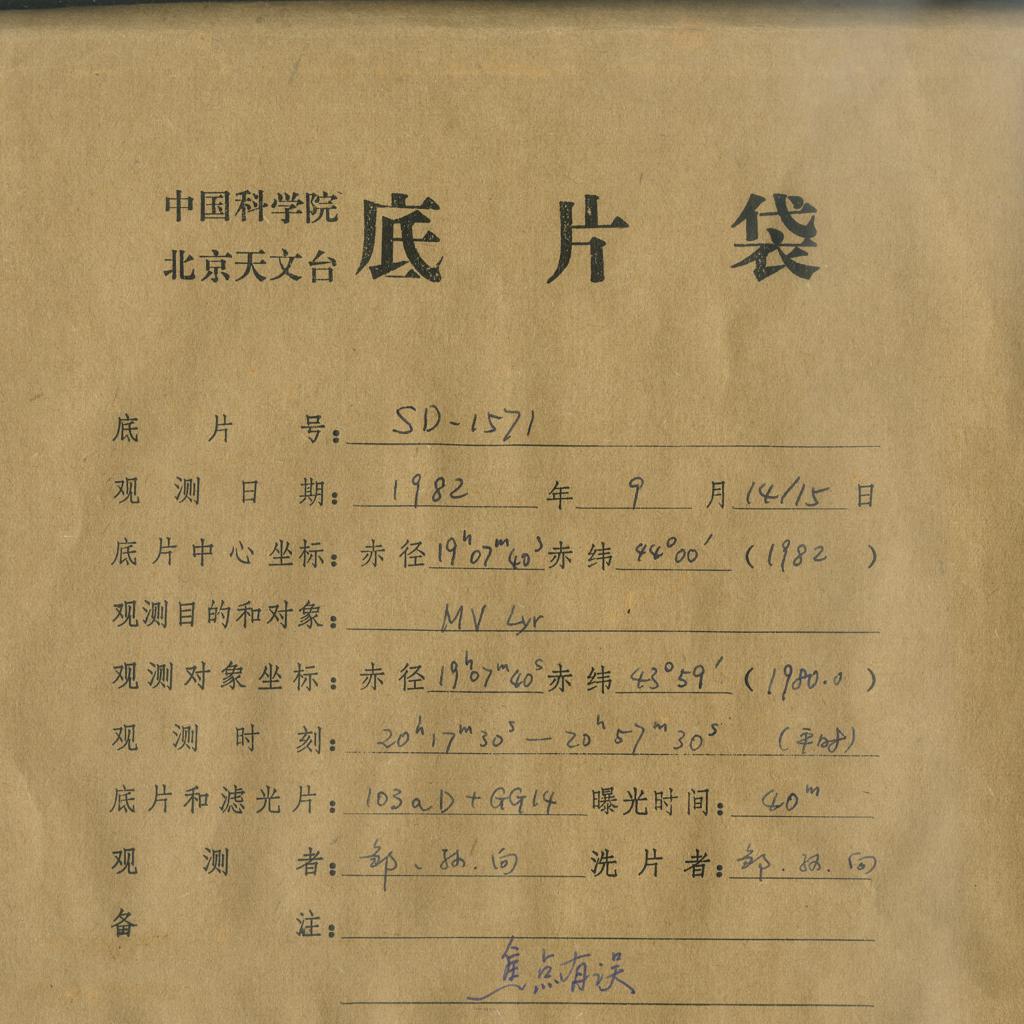 中国科学院
北京天文台
底片袋
底片号：SD-1571
观测日期：1982年9月14/15日
底片中心坐标：赤径19ʰ07ᵐ40ˢ赤纬44°00′（1982）
观测目的和对象：MV Lyr
观测对象坐标：赤径19ʰ07ᵐ40ˢ赤纬43°59′（1980.0）
观测时刻：20ʰ17ᵐ30ˢ—20ʰ57ᵐ30ˢ（平时）
底片和滤光片：103aD+GG14 曝光时间：40ᵐ
观测者：邹、孙.向 洗片者：邹.孙.向
备注：
焦点有误